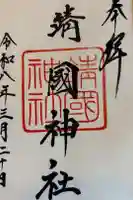 奉拝
靖國神社
靖國神社
令和八年三月二十日